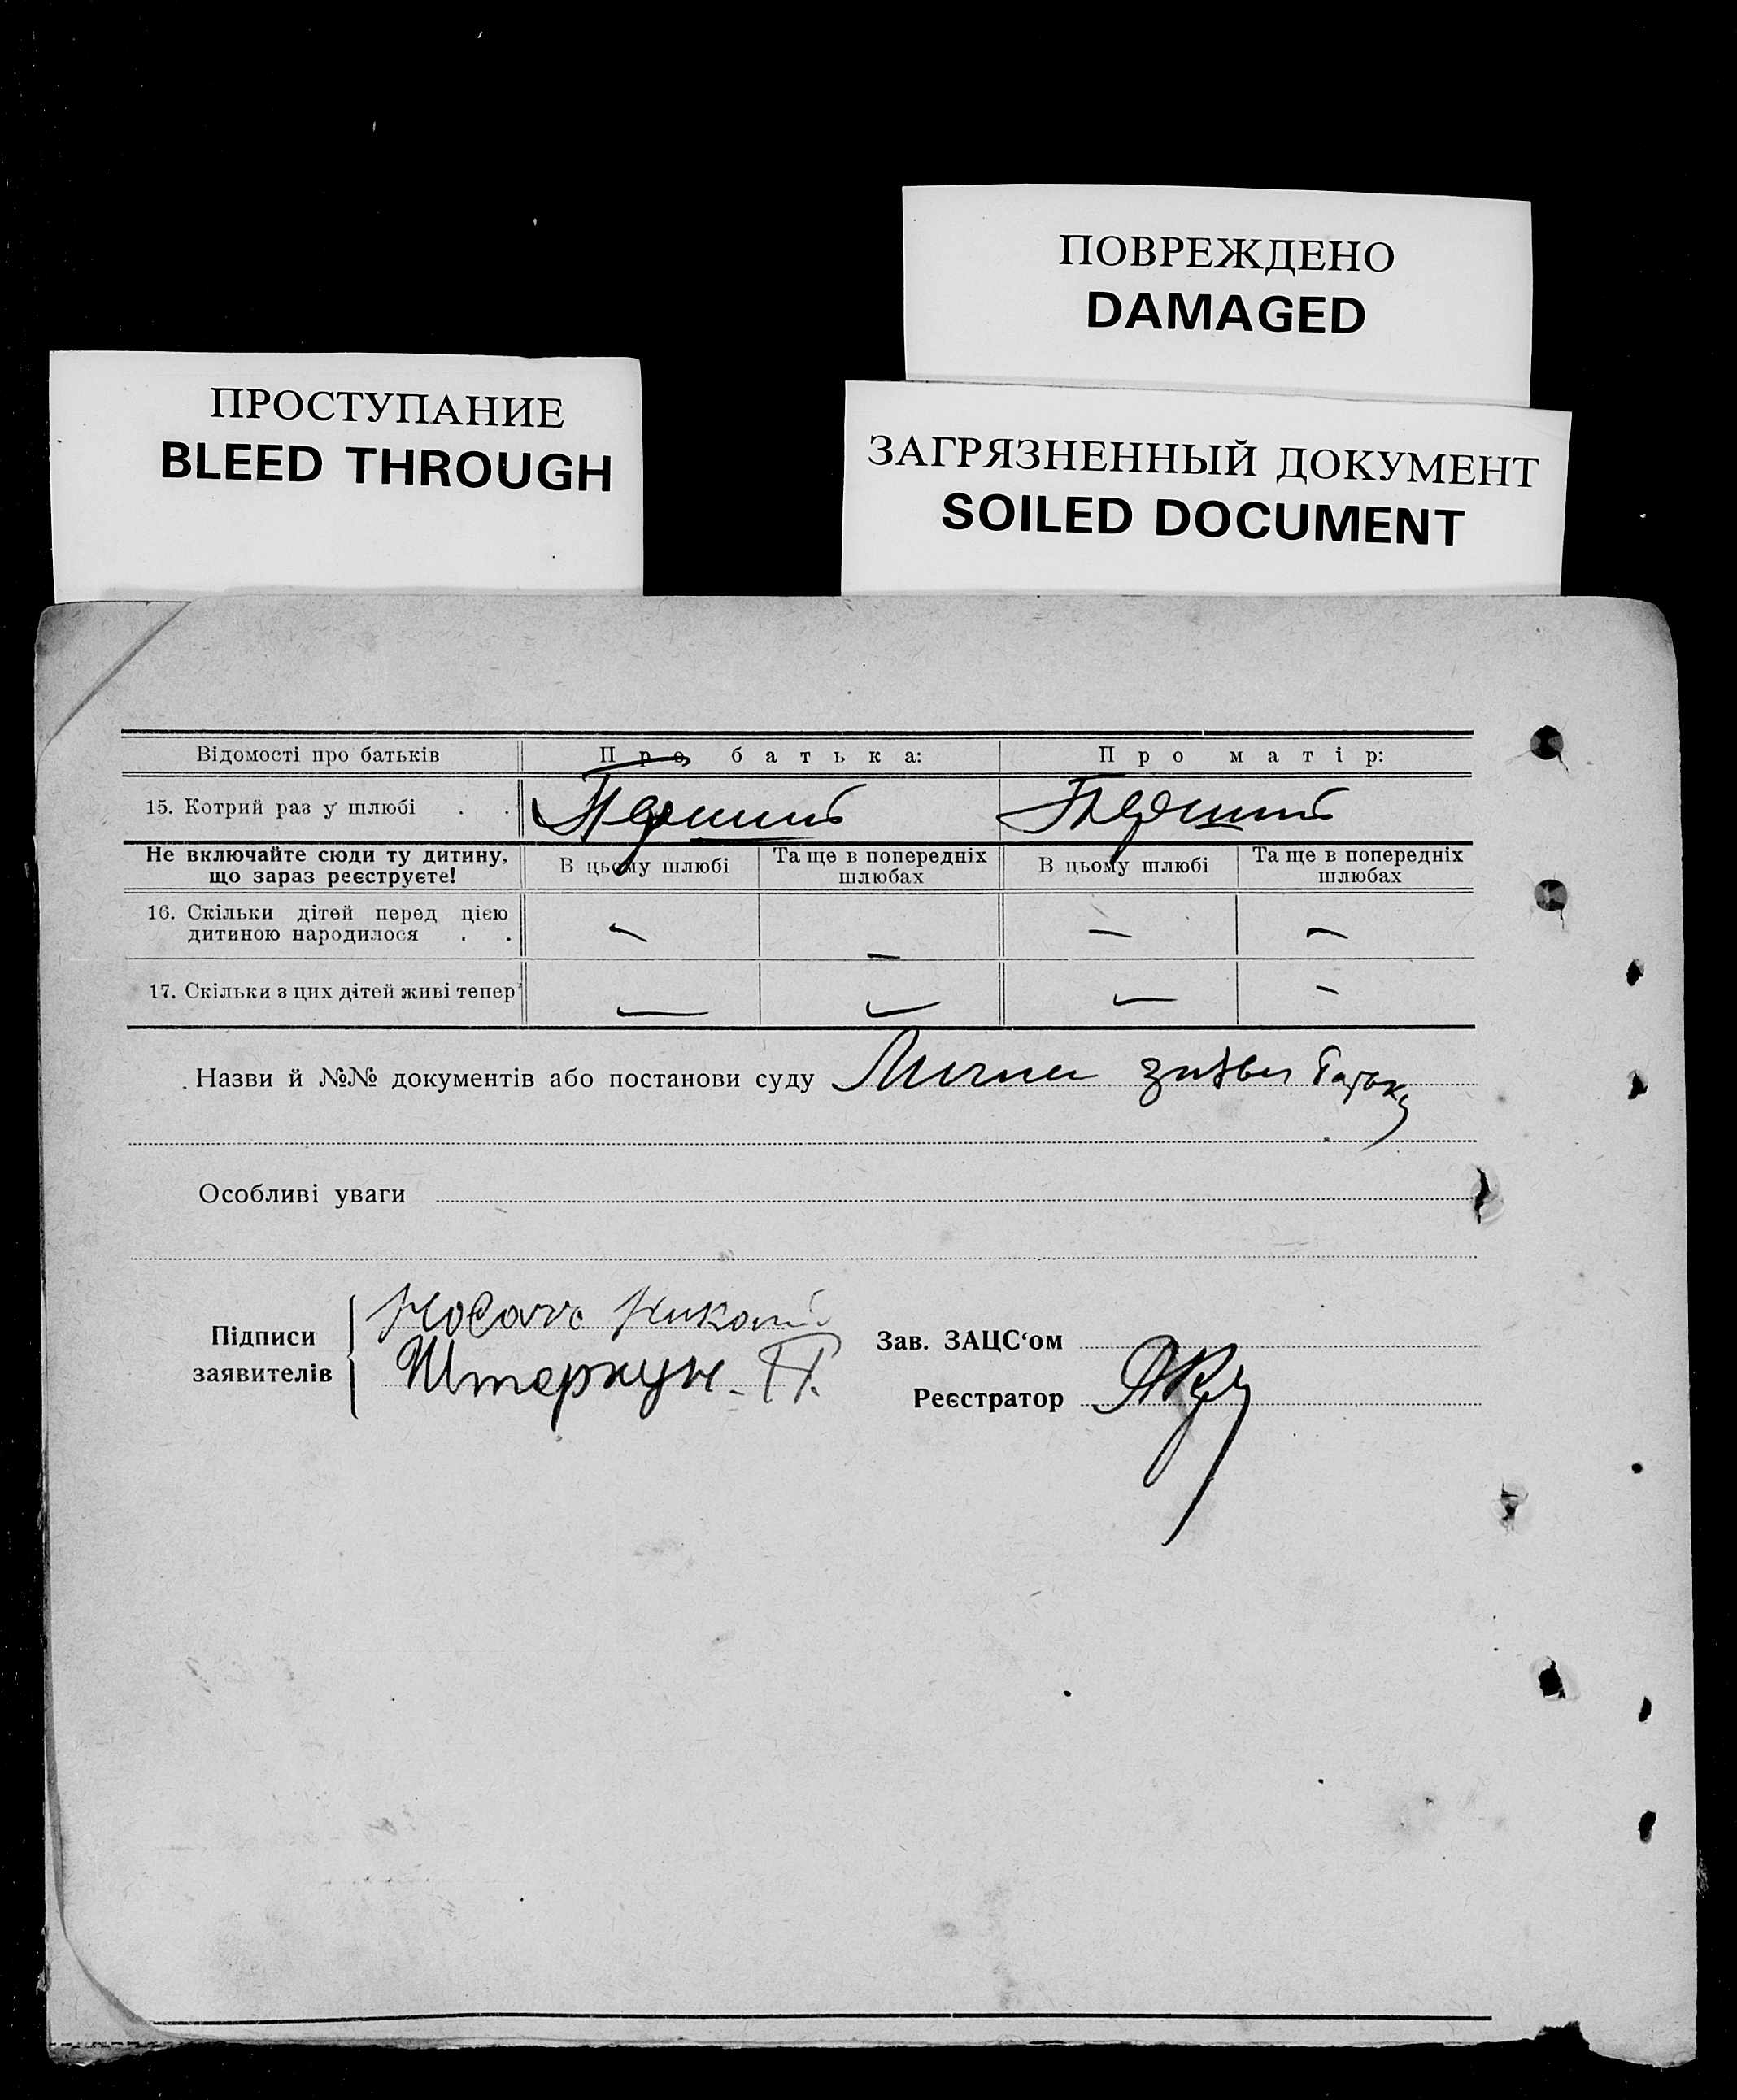 ПОВРЕЖДЕНО
DAMAGED
ПРОСТУПАНИЕ
BLEED THROUGH
ЗАГРЯЗНЕННЫЙ ДОКУМЕНТ
SOILED DOCUMENT
Відомості про батьків Про батька: Про матір:
15. Котрий раз у шлюбі . . Перший Перший
Не включайте сюди ту дитину, що зараз реєструєте! В цьому шлюбі Та ще в попередніх шлюбах В цьому шлюбі Та ще в попередніх шлюбах
16. Скільки дітей перед цією дитиною народилося . . — — — —
17. Скільки з цих дітей живі тепер — — — —
Назви й №№ документів або постанови суду заява батька
Особливі уваги
Підписи заявителів
Штеркун. П.
Зав. ЗАЦС‘ом
Реєстратор